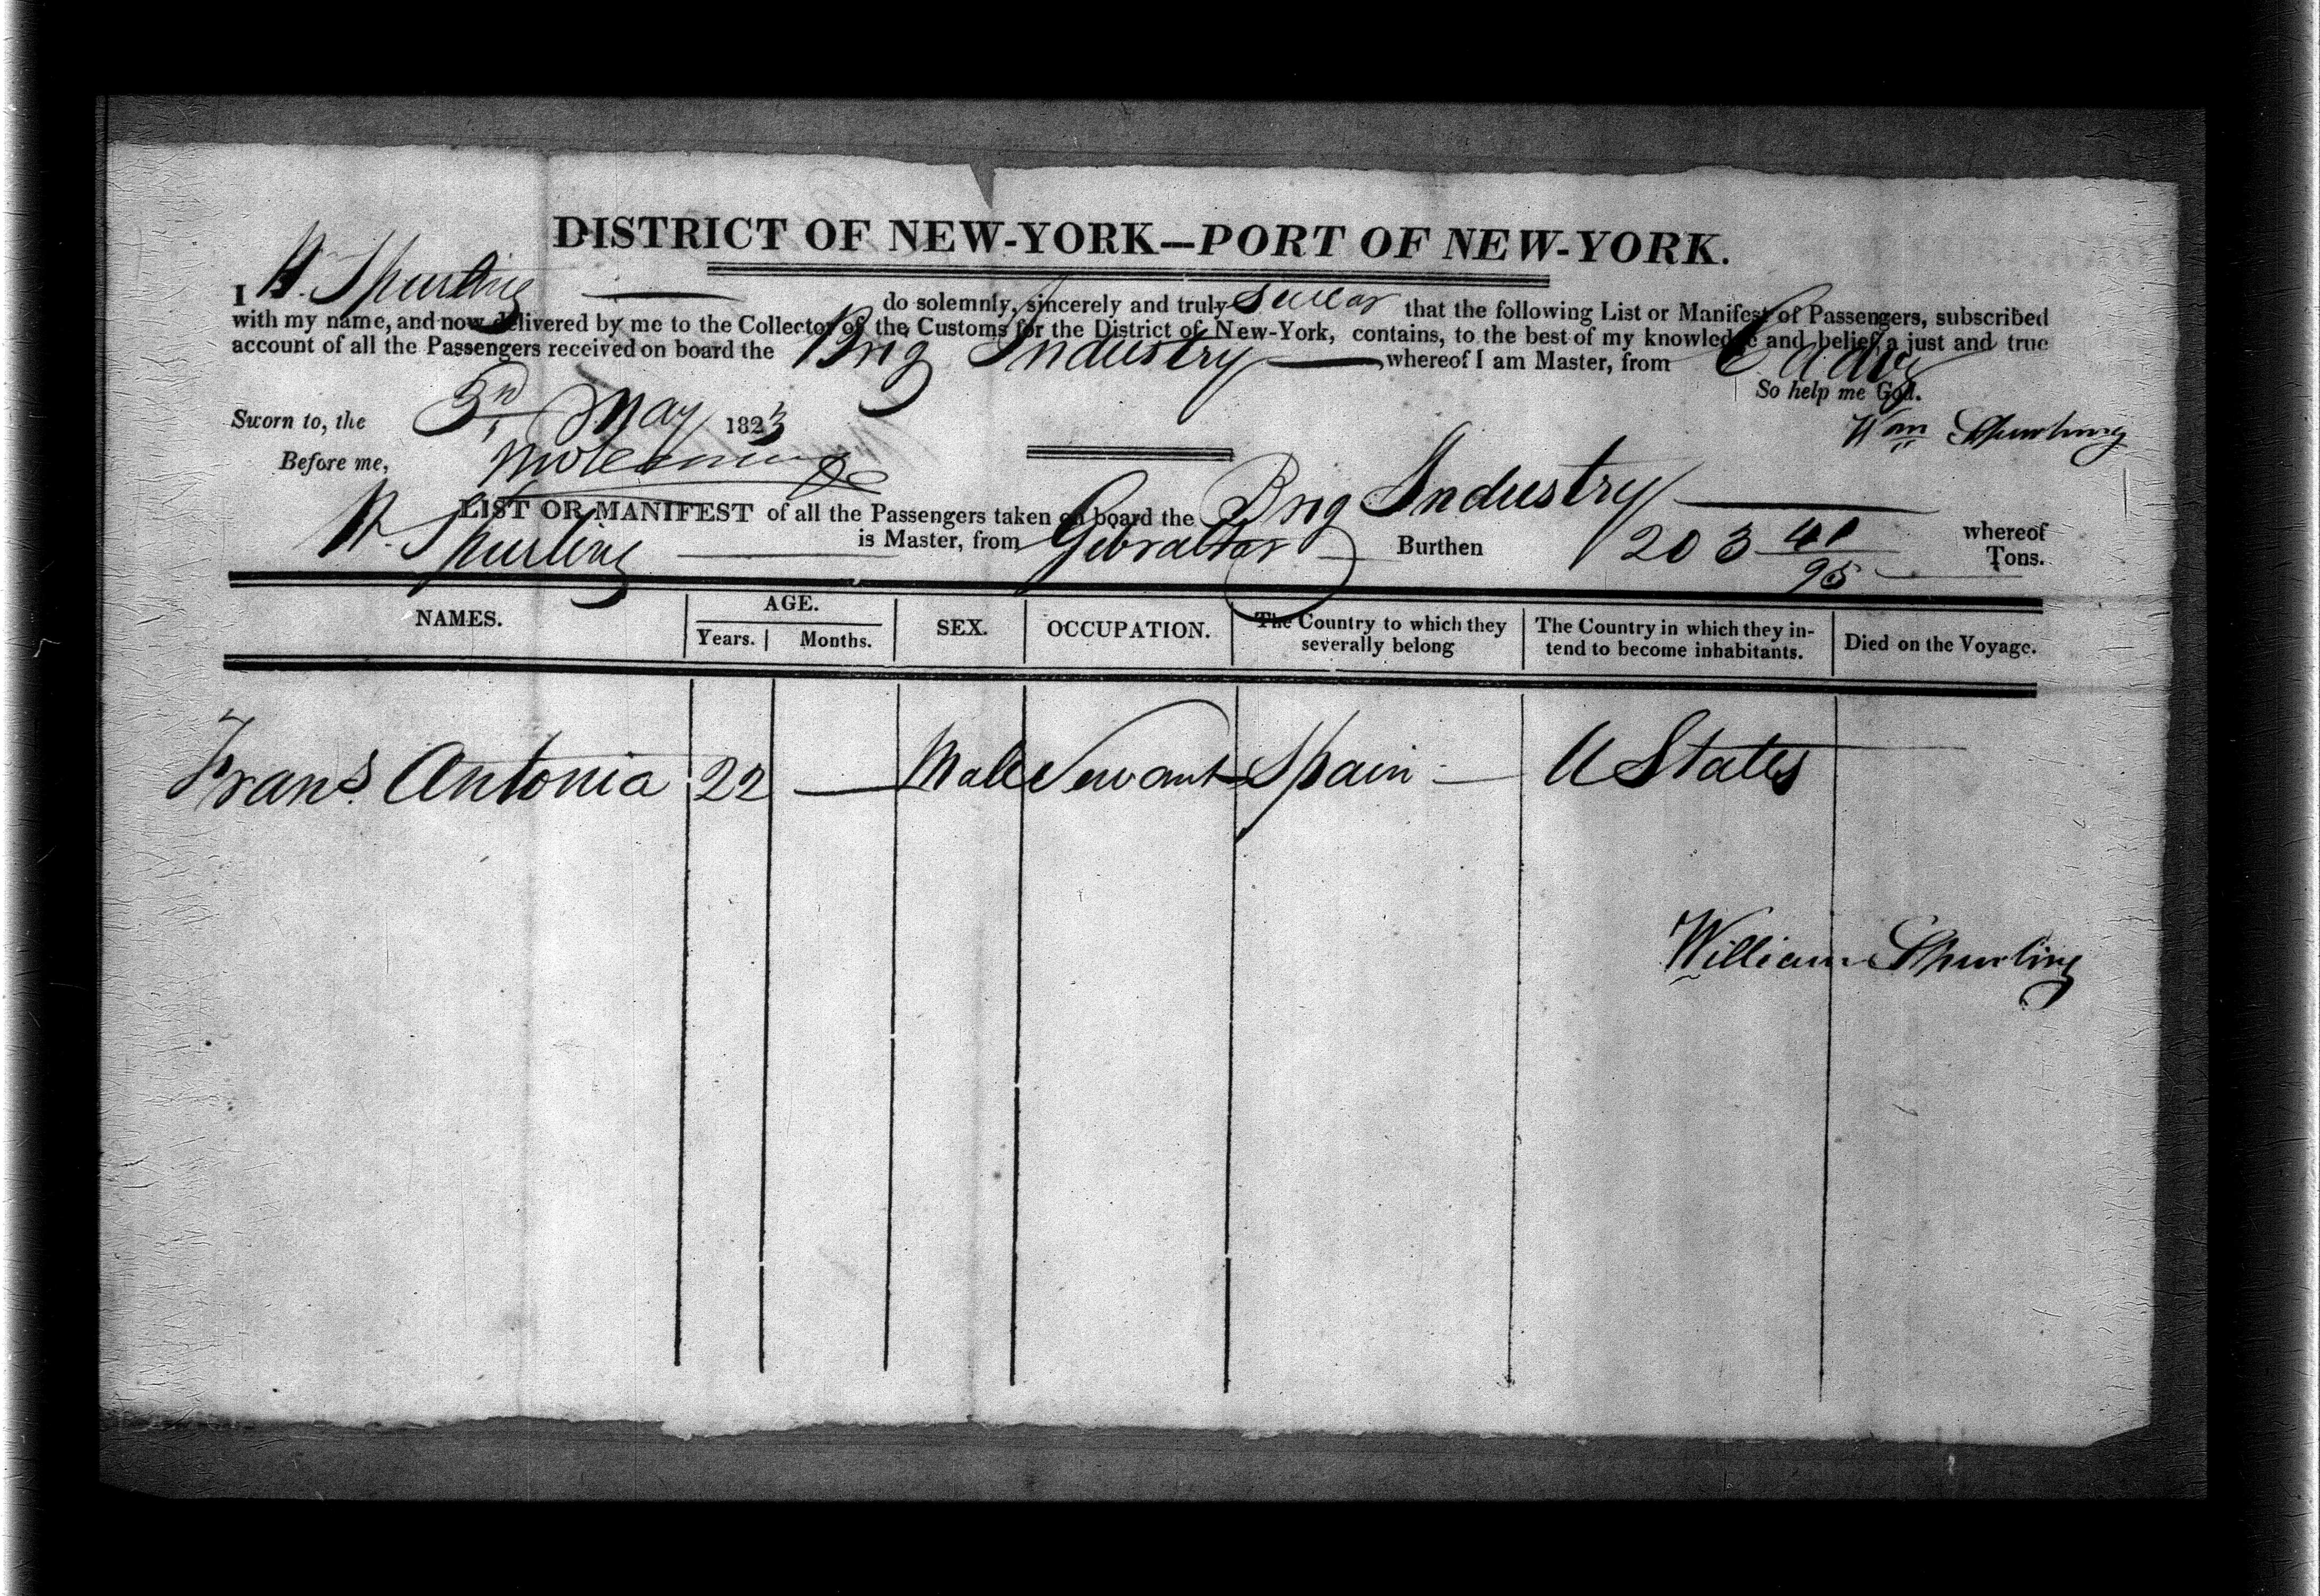 DISTRICT OF NEW-YORK—PORT OF NEW-YORK.
I W. Spurling do solemnly, sincerely and truly swear that the following List or Manifest of Passengers, subscribed
with my name, and now delivered by me to the Collector of the Customs for the District of New-York, contains, to the best of my knowledge and belief, a just and true
account of all the Passengers received on board the Brig Industry whereof I am Master, from Cadiz
So help me God.
Sworn to, the 3rd May 1823
Wm Spurling
Before me,
LIST OR MANIFEST of all the Passengers taken on board the Brig Industry whereof
W. Spurling is Master, from Gibraltar Burthen 203 41/95 Tons.
NAMES. AGE. Years. Months. SEX. OCCUPATION. The Country to which they severally belong The Country in which they intend to become inhabitants. Died on the Voyage.
Frans. Antonia 22 — Male Servant Spain — U States
William Spurling